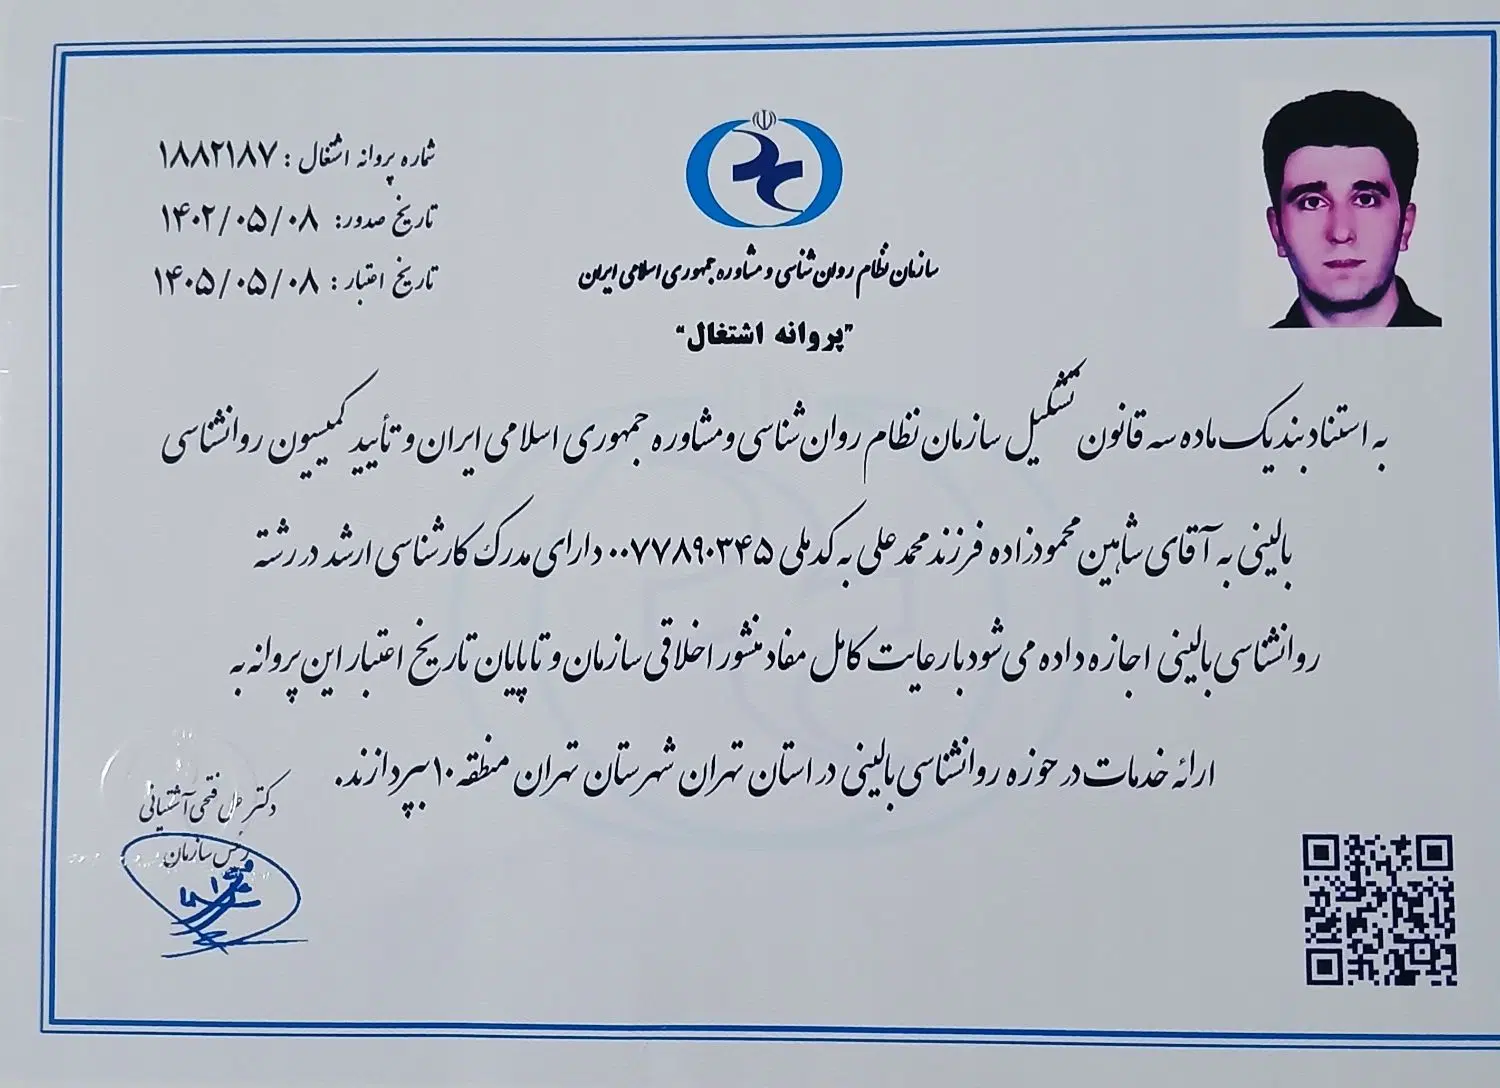 شماره پروانه اشتغال : ۱۸۸۲۱۸۷
تاریخ صدور: ۱۴۰۲/۰۵/۰۸
تاریخ اعتبار : ۱۴۰۵/۰۵/۰۸
سازمان نظام روان شناسی و مشاوره جمهوری اسلامی ایران
"پروانه اشتغال"
به استناد بند یک ماده سه قانون تشکیل سازمان نظام روان شناسی و مشاوره جمهوری اسلامی ایران و تأیید کمیسیون روانشناسی
بالینی به آقای شاهین محمودزاده فرزند محمدعلی به کد ملی ۰۰۷۷۸۹۰۳۴۵ دارای مدرک کارشناسی ارشد در رشته
روانشناسی بالینی اجازه داده می شود با رعایت کامل مفاد منشور اخلاقی سازمان و تا پایان تاریخ اعتبار این پروانه به
ارائه خدمات در حوزه روانشناسی بالینی در استان تهران شهرستان تهران منطقه ۱۰ بپردازند.
دکتر علی فتحی آشتیانی
رئیس سازمان